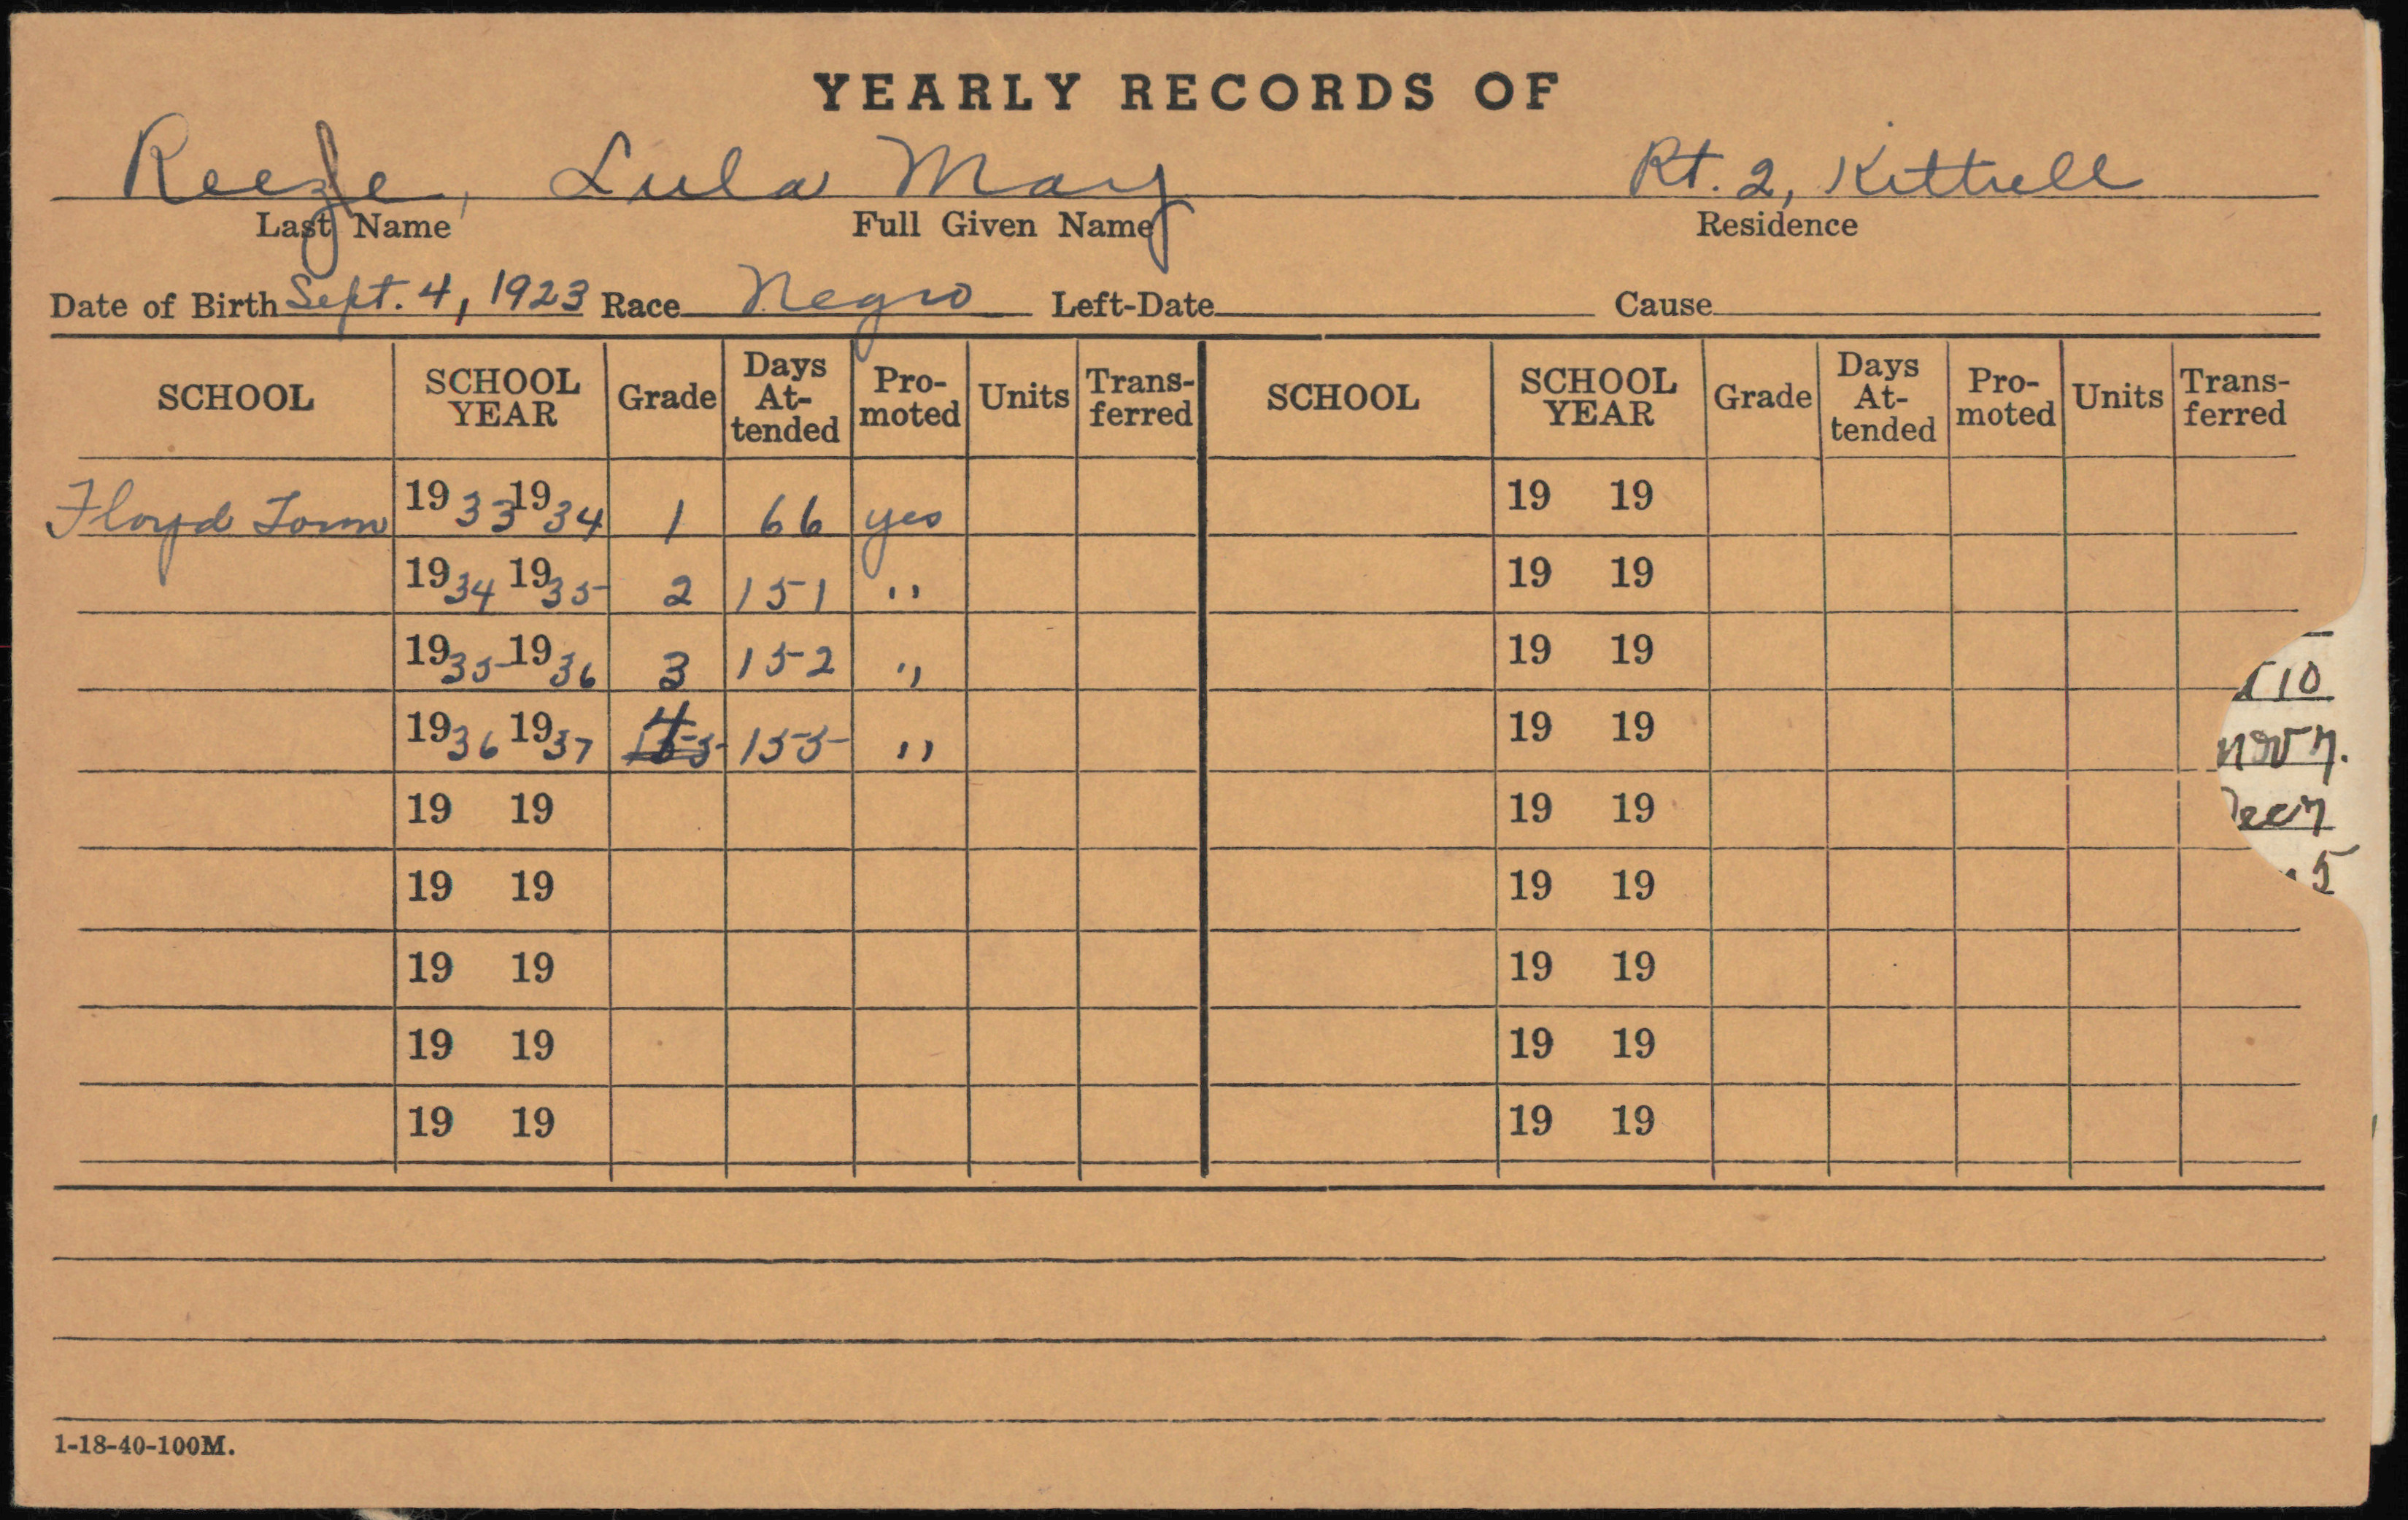 YEARLY RECORDS OF
Lula May Rt. 2, Kittrell
Last Name Full Given Name Residence
Date of Birth Sept. 4, 1923 Race Negro Left-Date Cause
SCHOOL SCHOOL YEAR Grade Days At-tended Pro-moted Units Trans-ferred SCHOOL SCHOOL YEAR Grade Days At-tended Pro-moted Units Trans-ferred
Floyd Town 1933 1934 1 66 yes 19 19
1934 1935 2 151 " 19 19
1935 1936 3 152 " 19 19
10
1936 1937 4 155 " 19 19
Nov 7.
19 19 19 19
Dec 7
19 19 19 19
5
19 19 19 19
19 19 19 19
19 19 19 19
1-18-40-100M.